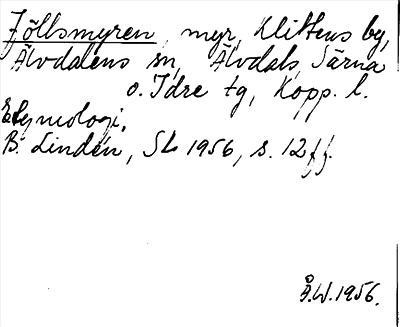 Jöllsmyren, myr, Klittens by,
Älvdalens sn, Älvdals, Särna
o. Idre tg, Kopp. l.
Etymologi.
B. Lindén, SL 1956, s. 12 ff.
Å.W. 1956.